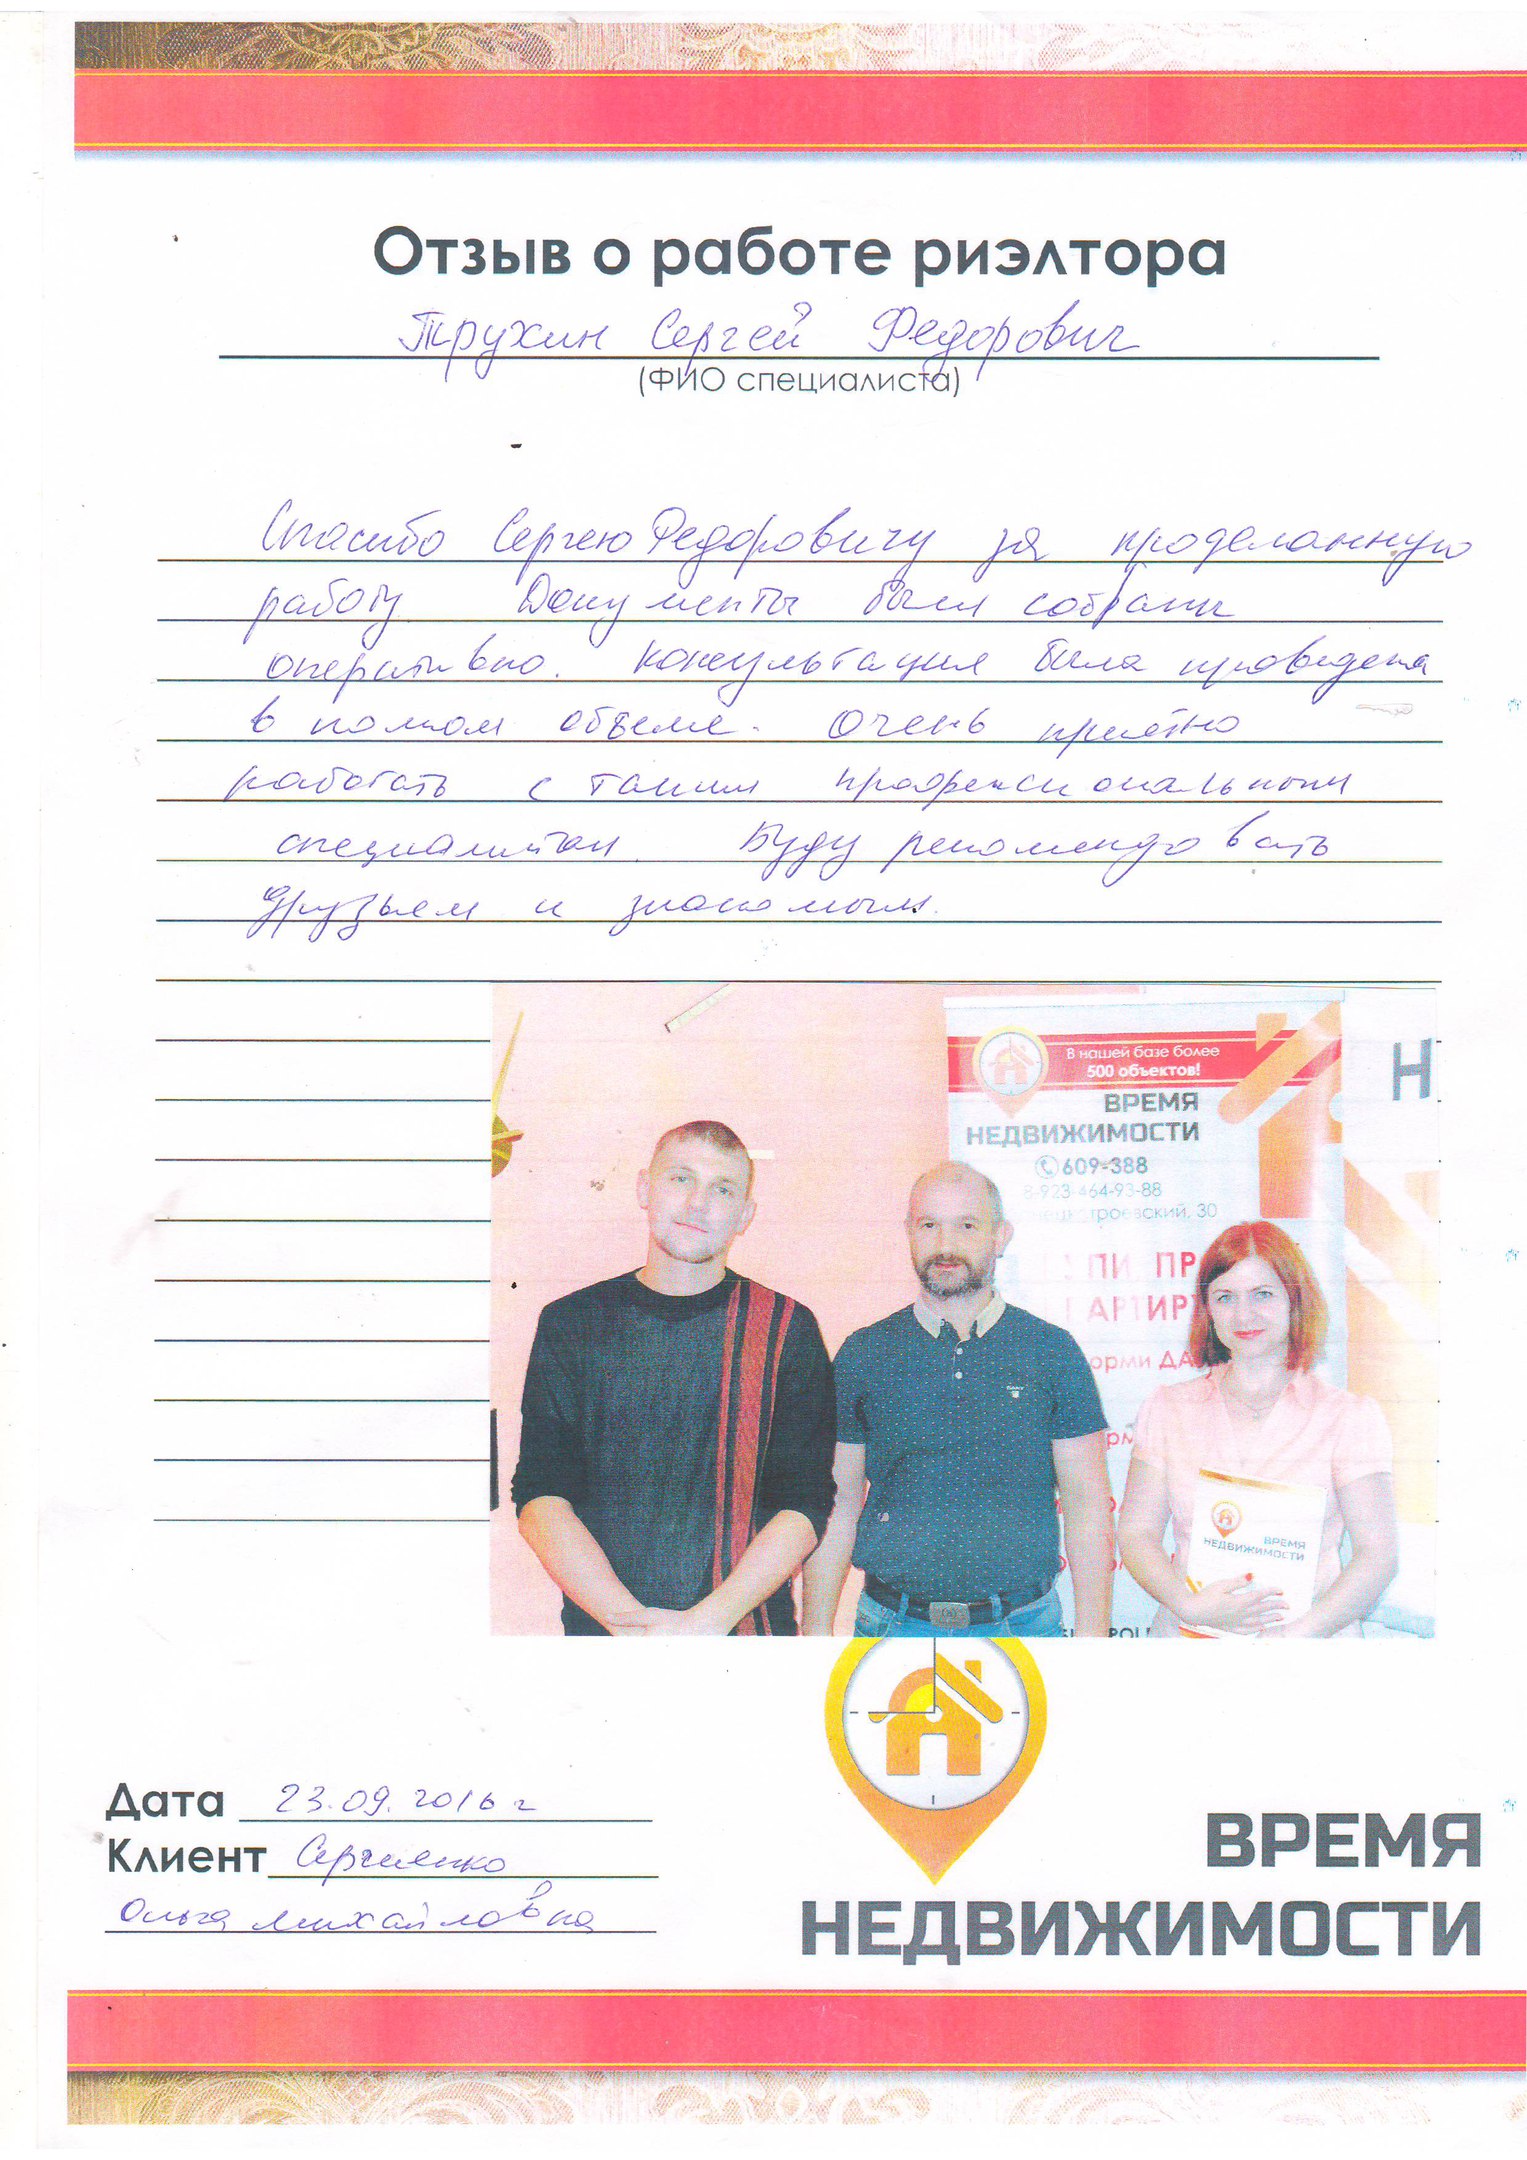 Отзыв о работе риэлтора
Трухин Сергей Федорович
(ФИО специалиста)
Спасибо Сергею Федоровичу за проделанную
работу Документы были собраны
оперативно. Консультация была проведена
в полном объеме. Очень приятно
работать с таким профессиональным
специалистом. Буду рекомендовать
друзьям и знакомым.
В нашей базе более
500 объектов!
ВРЕМЯ
НЕДВИЖИМОСТИ
609-388
8-923-464-93-88
строевский, 30
Н
ПИ ПР
АРТИР
орми ДА
ВРЕМЯ
НЕДВИЖИМОСТИ
Дата 23.09.2016 г
Клиент Сергиенко
Ольга Михайловна
ВРЕМЯ
НЕДВИЖИМОСТИ